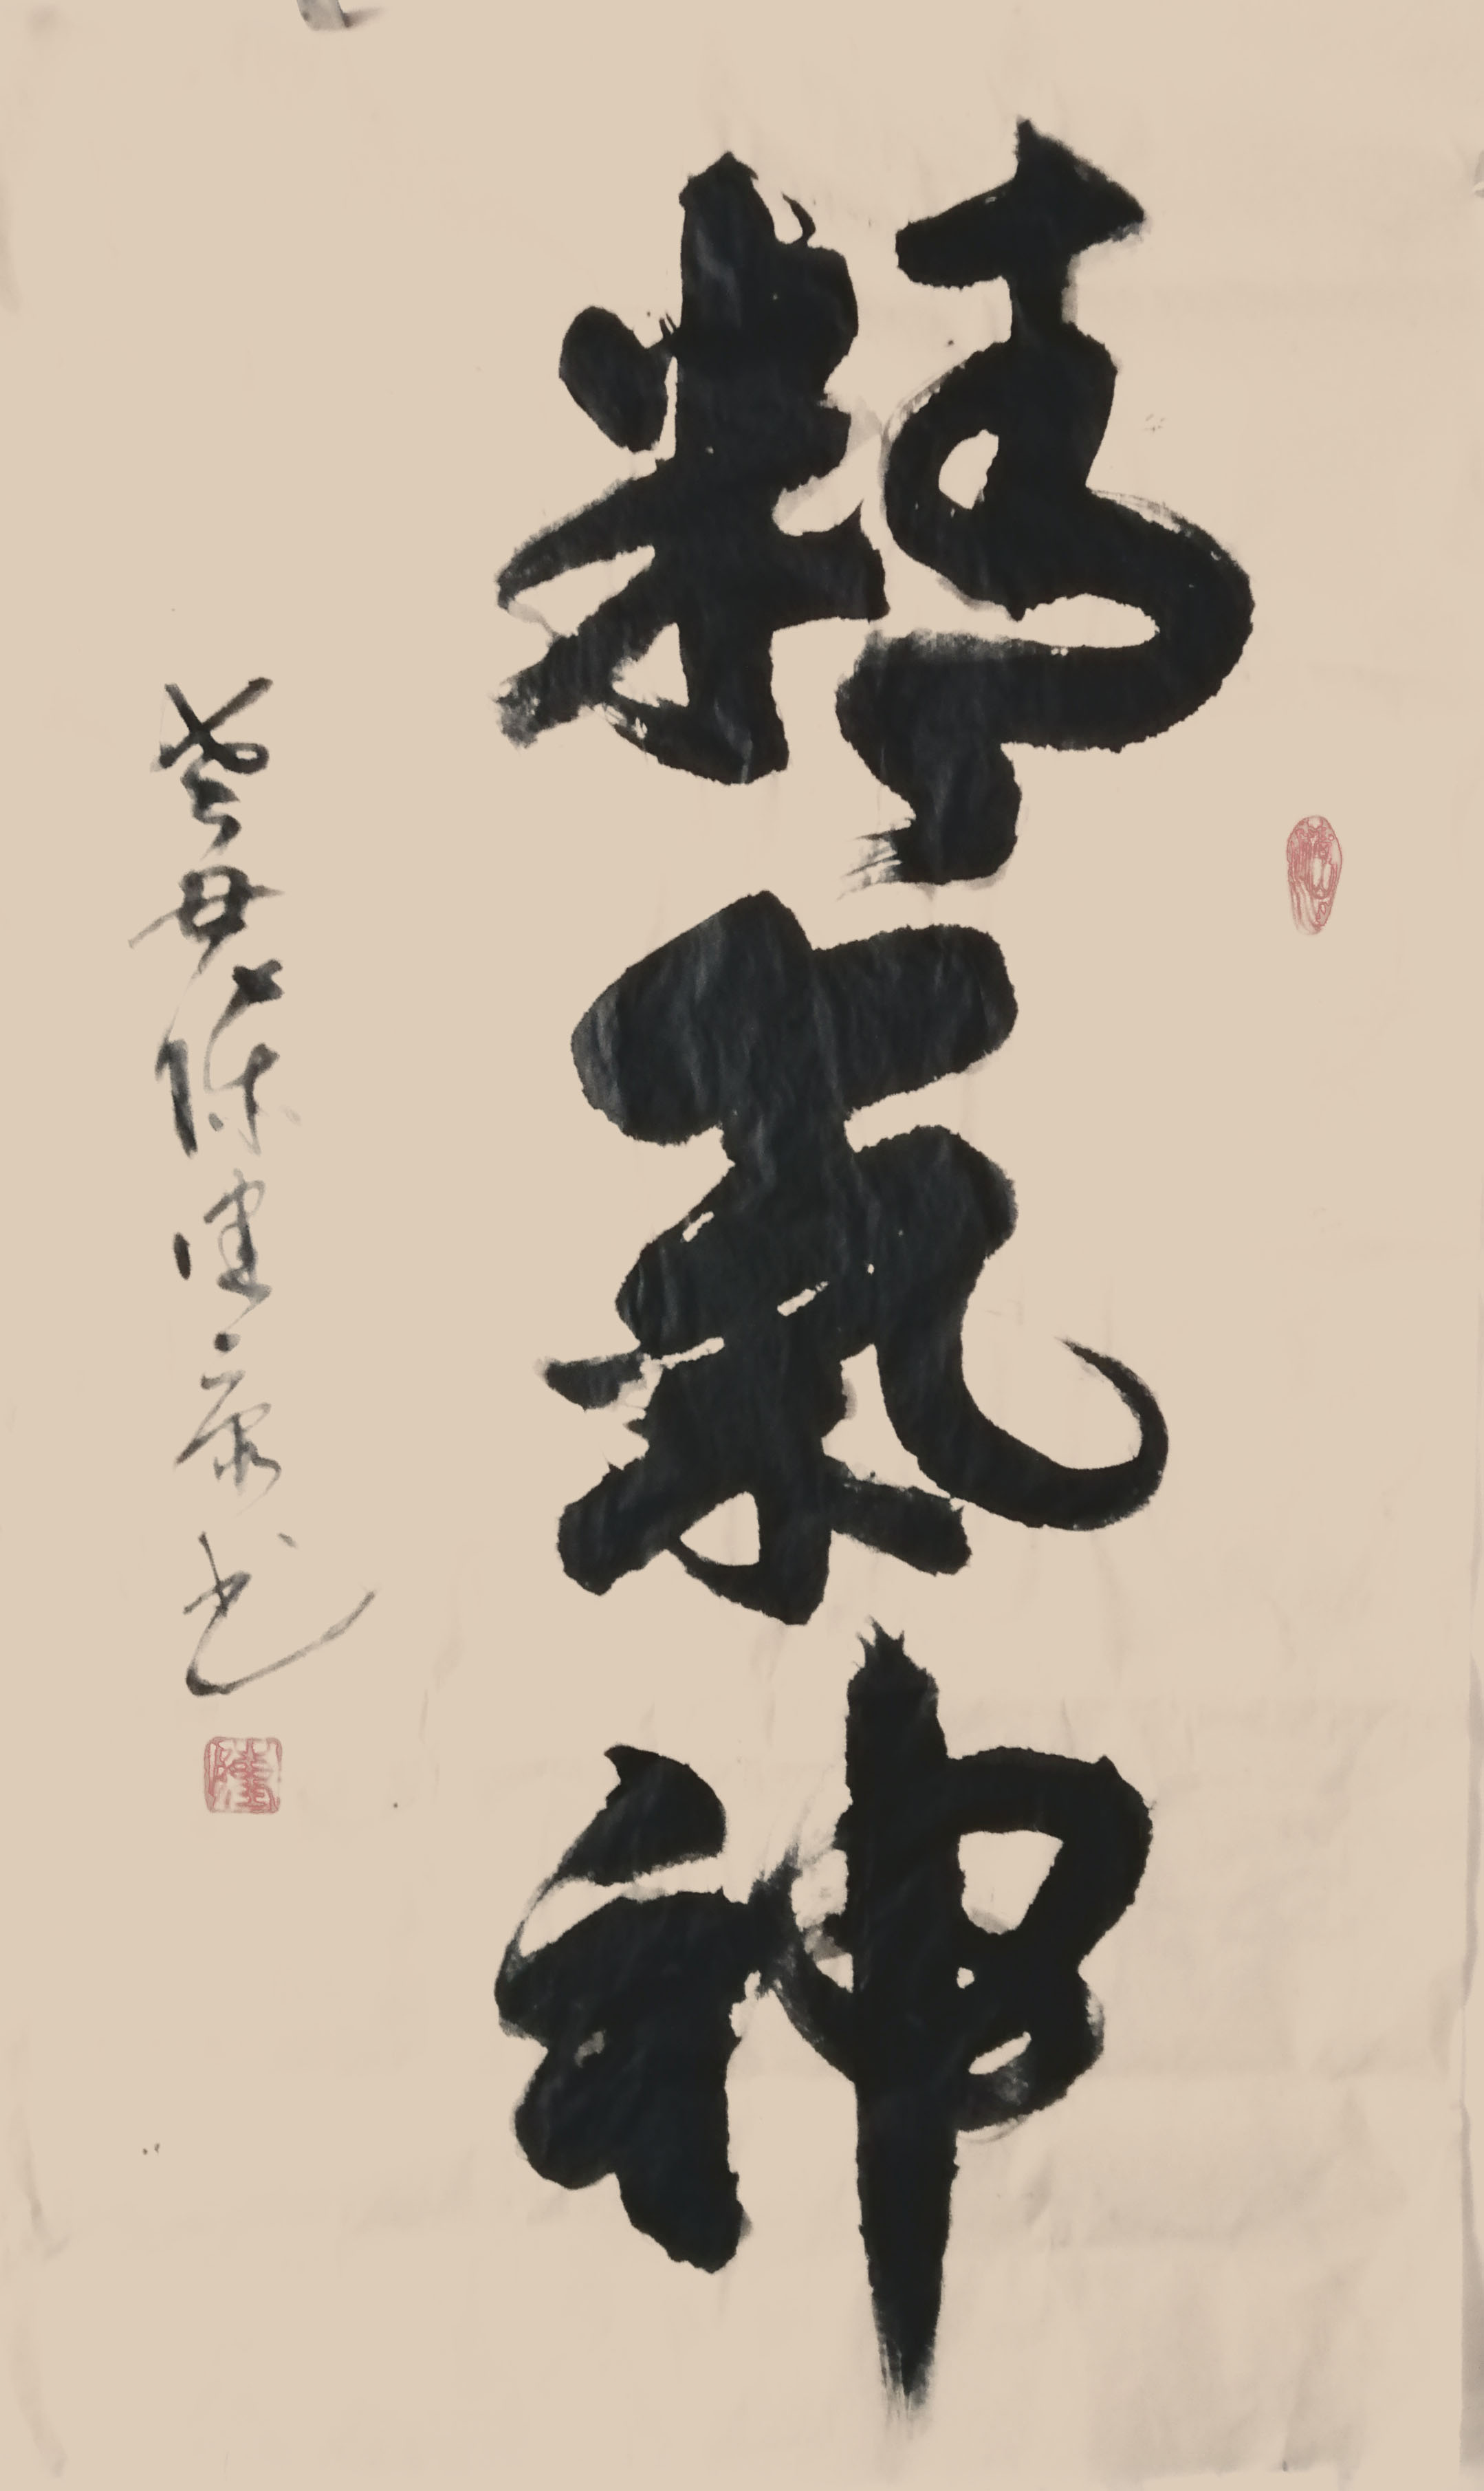 精氣神
癸丑冬陈建康书